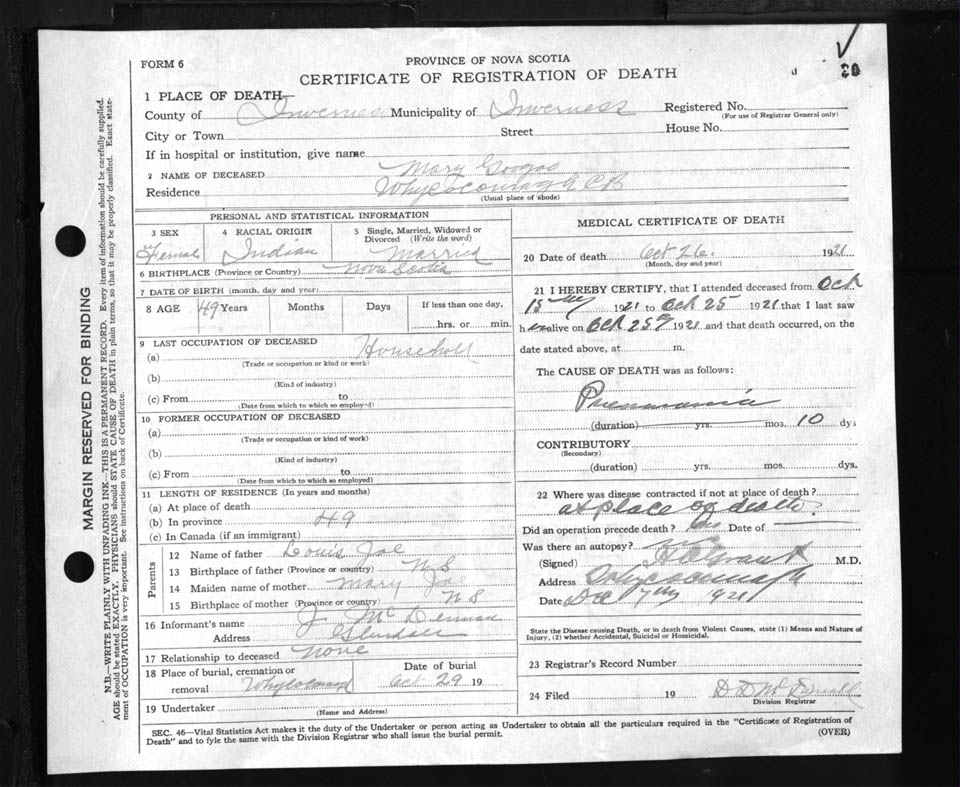 FORM 6
PROVINCE OF NOVA SCOTIA
CERTIFICATE OF REGISTRATION OF DEATH
20
1 PLACE OF DEATH—
County of Inverness Municipality of Inverness Registered No.
(For use of Registrar General only)
City or Town Street House No.
If in hospital or institution, give name
2 NAME OF DECEASED Mary Googoo
Residence Whycocomagh C B
(Usual place of abode)
PERSONAL AND STATISTICAL INFORMATION
3 SEX 4 RACIAL ORIGIN 5 Single, Married, Widowed or Divorced (Write the word)
Femal Indian Married
6 BIRTHPLACE (Province or Country) Nova Scotia
7 DATE OF BIRTH (month, day and year)
8 AGE 49 Years Months Days If less than one day,
hrs. or min.
9 LAST OCCUPATION OF DECEASED
(a) Household
(Trade or occupation or kind or work)
(b)
(Kind of industry)
(c) From to
(Date from which to which so employed)
10 FORMER OCCUPATION OF DECEASED
(a)
(Trade or occupation or kind of work)
(b)
(Kind of industry)
(c) From to
(Date from which to which so employed)
11 LENGTH OF RESIDENCE (In years and months)
(a) At place of death
(b) In province 49
(c) In Canada (if an immigrant)
Parents
12 Name of father Louis Joe
13 Birthplace of father (Province or country) N S
14 Maiden name of mother Mary Joe
15 Birthplace of mother (Province or country) N S
16 Informant's name J Mc
Address
17 Relationship to deceased None
18 Place of burial, cremation or removal Date of burial
Oct 29 19
19 Undertaker
(Name and Address)
MEDICAL CERTIFICATE OF DEATH
20 Date of death Oct 26. 1921
(Month, day and year)
21 I HEREBY CERTIFY, that I attended deceased from Oct
15th 1921 to Oct 25 1921 that I last saw
h alive on Oct 25th 1921 and that death occurred, on the
date stated above, at m.
The CAUSE OF DEATH was as follows:
Pneumonia
(duration) yrs. mos. 10 dys
CONTRIBUTORY
(Secondary)
(duration) yrs. mos. dys.
22 Where was disease contracted if not at place of death?
at place of death
Did an operation precede death? no Date of
Was there an autopsy? no
(Signed) M.D.
Address Whycocomagh
Date Dec 7th 1921
State the Disease causing Death, or in death from Violent Causes, state (1) Means and Nature of
Injury, (2) whether Accidental, Suicidal or Homicidal.
23 Registrar's Record Number
24 Filed 19
Division Registrar
SEC. 46—Vital Statistics Act makes it the duty of the Undertaker or person acting as Undertaker to obtain all the particulars required in the "Certificate of Registration of
Death" and to fyle the same with the Division Registrar who shall issue the burial permit.
(OVER)
MARGIN RESERVED FOR BINDING
N.B.—WRITE PLAINLY WITH UNFADING INK—THIS IS A PERMANENT RECORD. Every item of information should be carefully supplied.
AGE should be stated EXACTLY. PHYSICIANS should STATE CAUSE OF DEATH in plain terms, so that it may be properly classified. Exact state-
ment of OCCUPATION is very important. See instructions on back of Certificate.